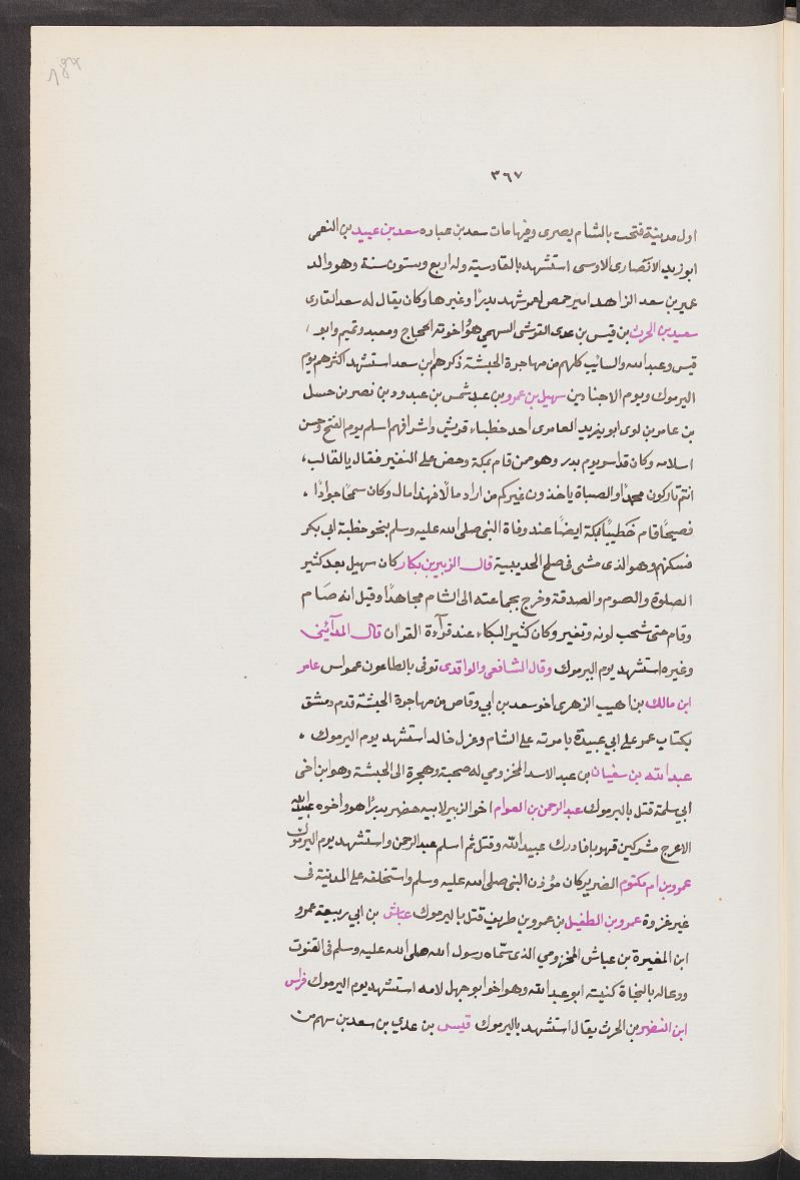 ١٨٤
٣٦٧
اول مدينة فتحت بالشام بصرى وفيها مات سعد بن عباده سعد بن عبيد بن النعمى
ابو زيد الانصارى الاوسى استشهد بالقادسية وله اربع وستون سنة وهو والد
عمير بن سعد الزاهد امير حمص لعمر شهد بدرًا وغيرها وكان يقال له سعد القارى
سعيد بن الحرث بن قيس بن عدى القرشى السهمي هو واخوته الحجاج ومعبد وتميم وابو
قيس وعبد الله والسائب كلهم من مهاجرة الحبشة ذكرهم ابن سعد استشهد اكثرهم يوم
اليرموك ويوم الاجنادين سهيل بن عمرو بن عبد شمس بن عبد ود بن نصر بن حسل
بن عامر بن لوى ابو يزيد العامرى احد خطباء قريش واشرافهم اسلم يوم الفتح وحسن
اسلامه وكان قد اسر يوم بدر وهو ممن قام بمكة وحض على النفير فقال يال غالب،
انتم تاركون محمدًا والصباة ياخذون عيركم من اراد مالا فهذا مال وكان سمحًا جوادًا .
فصيحًا قام خطيبًا بمكة ايضًا عند وفاة النبى صلى الله عليه وسلم بنحو خطبة ابى بكر
فسكنهم وهو الذى مشى فى صلح الحديبية قال الزبير بن بكار كان سهيل بعد كثير
الصلوة والصوم والصدقة وخرج بجماعته الى الشام مجاهدًا وقيل انه صام
وقام حتى شحب لونه وتغير وكان كثير البكاء عند قرآءة القران قال المدآئنى
وغيره استشهد يوم اليرموك وقال الشافعى والواقدى توفى بالطاعون عمواس عامر
ابن مالك بن اهيب الزهرى اخو سعد بن ابي وقاص من مهاجرة الحبشة قدم دمشق
بكتاب عمر على ابي عبيدة بامرته على الشام وعزل خالد استشهد يوم اليرموك .
عبد الله بن سفيان بن عبد الاسد المخزومي له صحبة وهجرة الى الحبشة وهو ابن اخى
ابي سلمة قتل باليرموك عبد الرحمن بن العوام اخو الزبير لابيه حضر بدرًا هو واخوه عبيد الله
الاعرج مشركين فهربا فادرك عبيد الله وقتل ثم اسلم عبد الرحمن واستشهد يوم اليرموك
عمرو بن ام مكتوم الضرير كان مؤذن النبى صلى الله عليه وسلم واستخلفه على المدينة فى
غير غزوة عمرو بن الطفيل بن عمرو بن طريف قتل باليرموك عياش بن ابي ربيعة عمرو
ابن المغيرة بن عياش المخزومي الذى سماه رسول الله صلى الله عليه وسلم فى القنوت
ودعا له بالنجاة كنيته ابو عبد الله وهو اخو ابو جهل لامه استشهد يوم اليرموك فراس
ابن النضر بن الحرث يقال استشهد باليرموك قيس بن عدي بن سعد بن سهم من